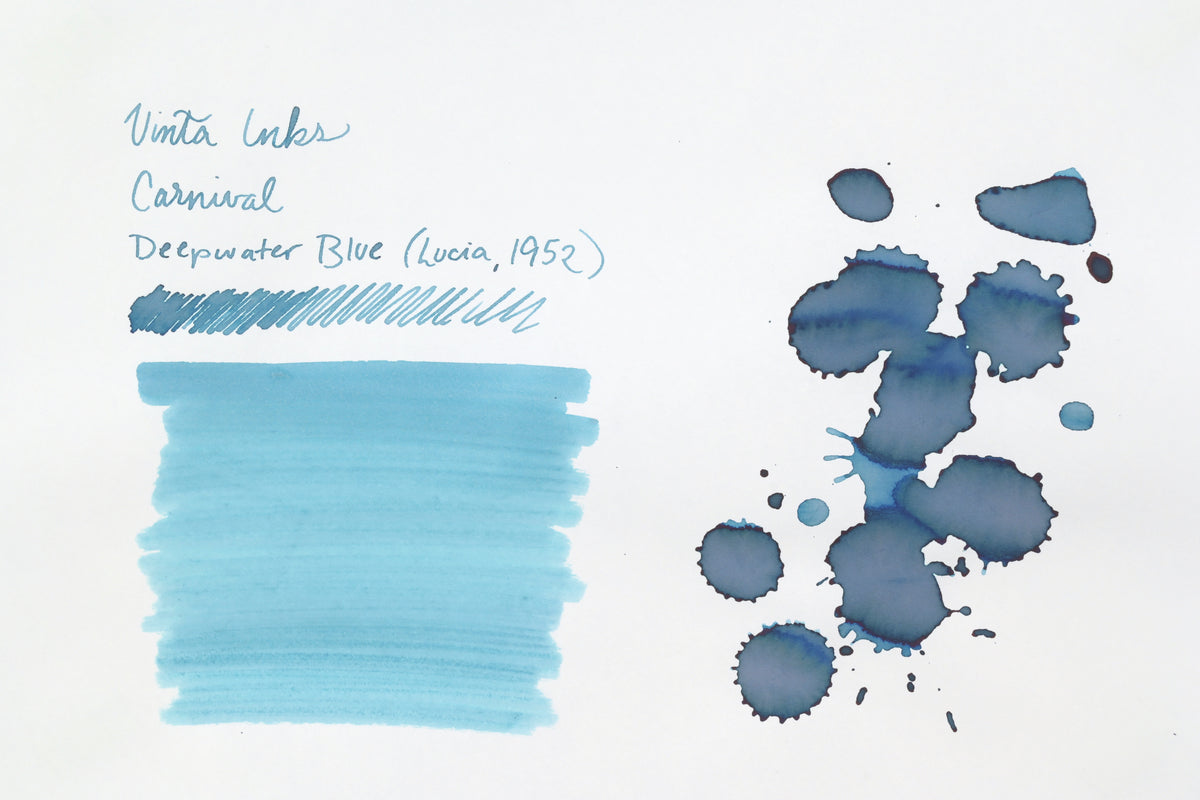 Vinta Inks
Carnival
Deepwater Blue (Lucia, 1952)